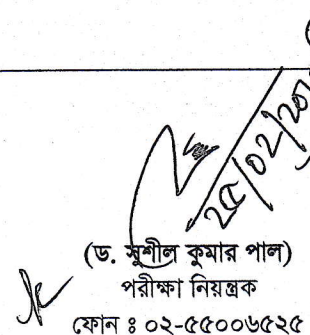 ২৫/০২/২০
(ড. সুশীল কুমার পাল)
পরীক্ষা নিয়ন্ত্রক
ফোন ঃ ০২-৫৫০০৬৫২৫